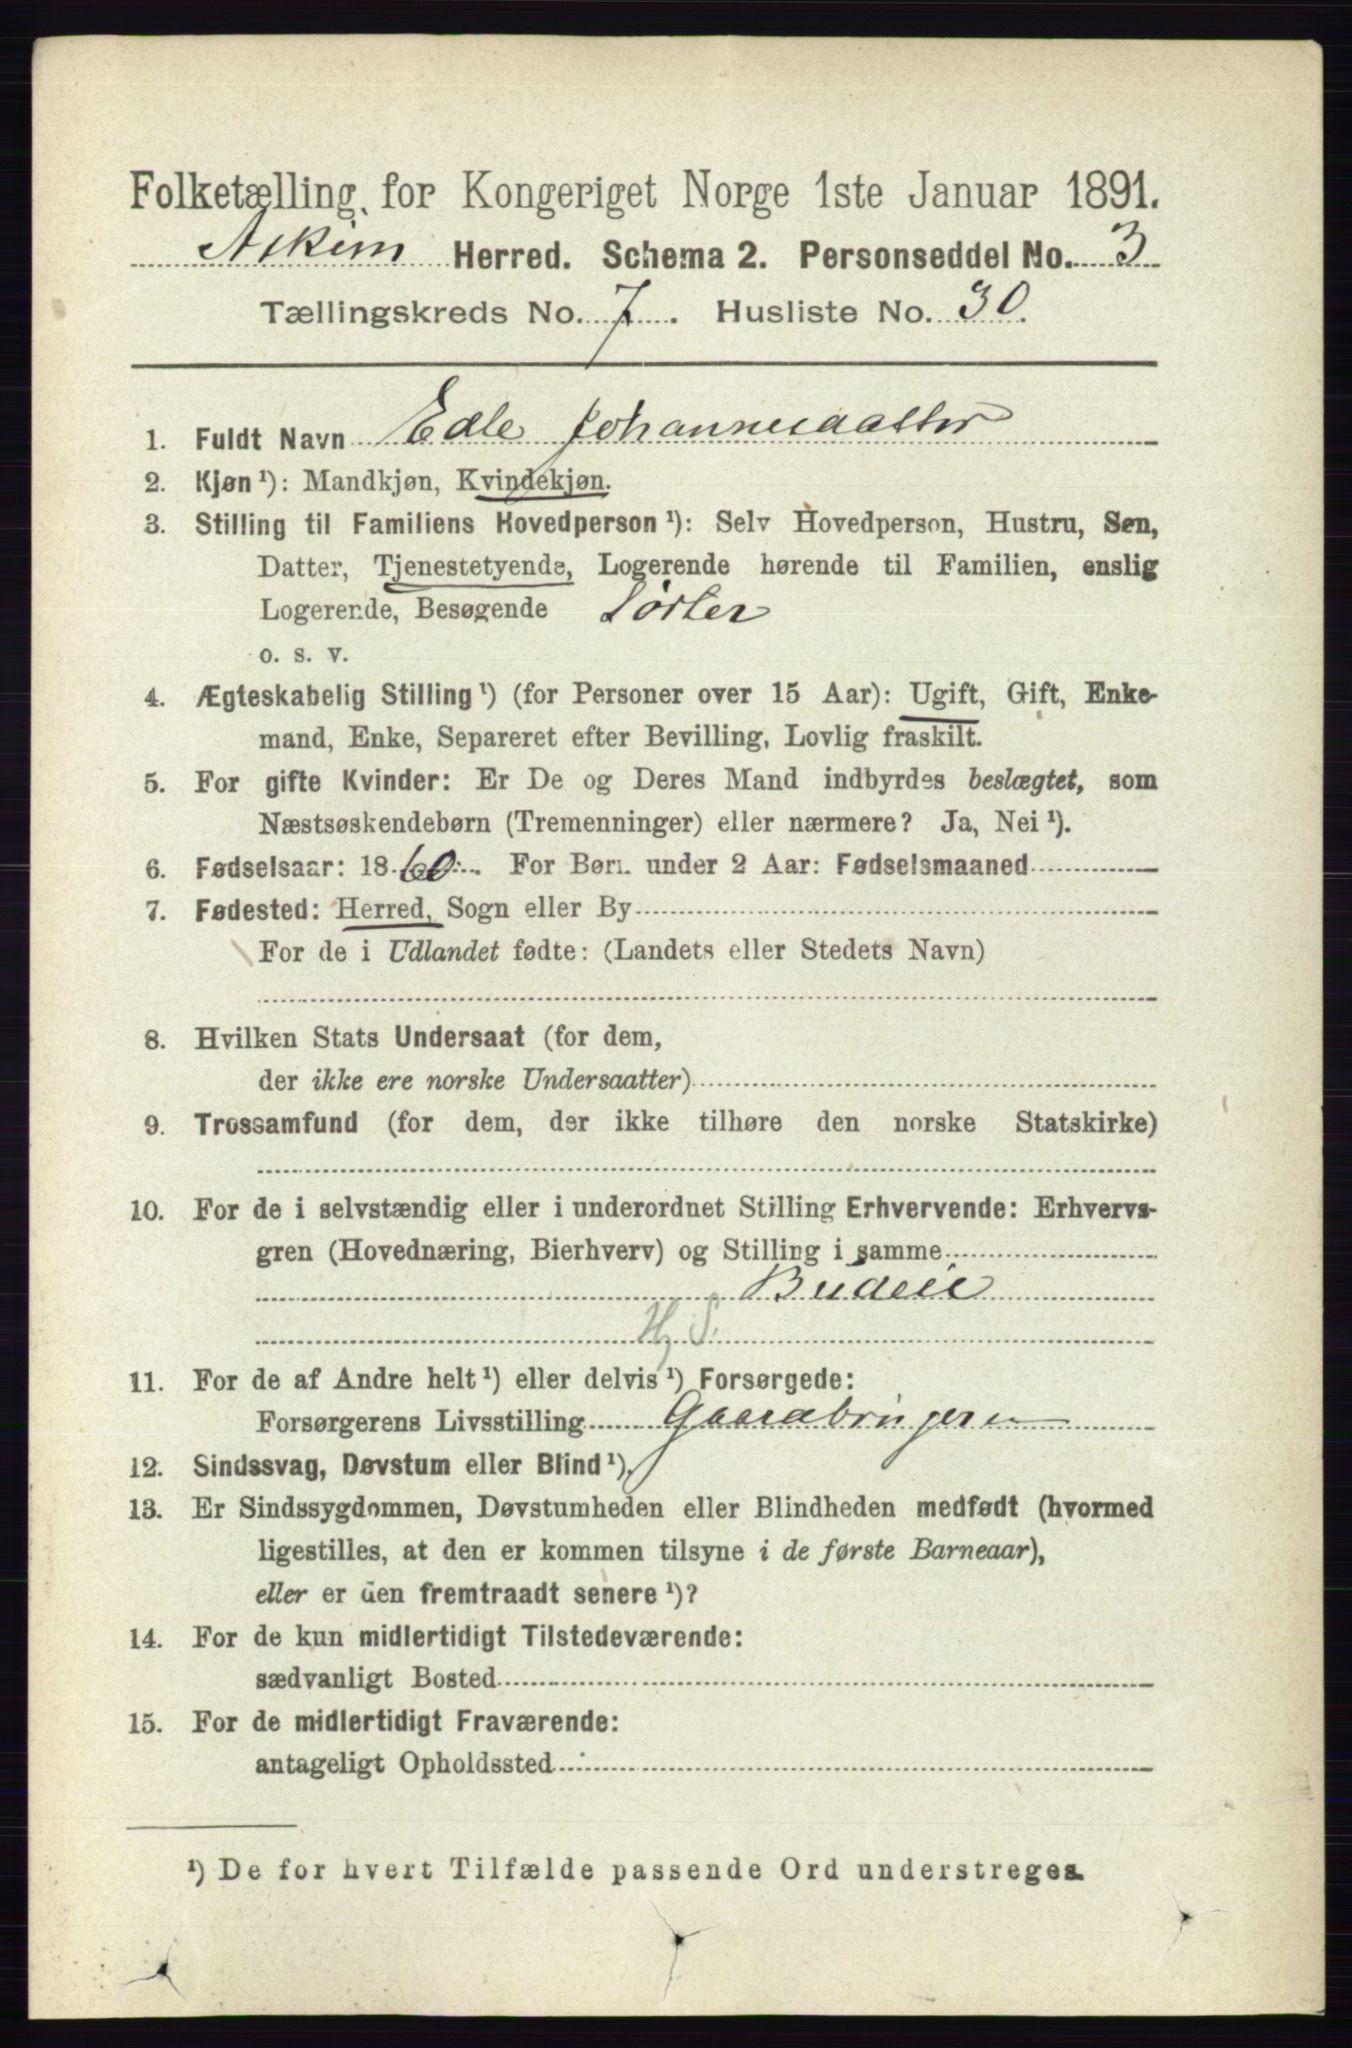 Folketælling for Kongeriget Norge 1ste Januar 1891.
Askim Herred. Schema 2. Personseddel No. 3
Tællingskreds No. 7. Husliste No. 30.
1. Fuldt Navn Edle Johannesdatter
2. Kjøn ¹): Mandkjøn, Kvindekjøn.
3. Stilling til Familiens Hovedperson ¹): Selv Hovedperson, Hustru, Søn,
Datter, Tjenestetyende, Logerende hørende til Familien, enslig
Logerende, Besøgende Søster
o. s. v.
4. Ægteskabelig Stilling ¹) (for Personer over 15 Aar): Ugift, Gift, Enke-
mand, Enke, Separeret efter Bevilling, Lovlig fraskilt.
5. For gifte Kvinder: Er De og Deres Mand indbyrdes beslægtet, som
Næstsøskendebørn (Tremenninger) eller nærmere? Ja, Nei ¹).
6. Fødselsaar: 1860. For Børn under 2 Aar: Fødselsmaaned
7. Fødested: Herred, Sogn eller By
For de i Udlandet fødte: (Landets eller Stedets Navn)
8. Hvilken Stats Undersaat (for dem,
der ikke ere norske Undersaatter)
9. Trossamfund (for dem, der ikke tilhøre den norske Statskirke)
10. For de i selvstændig eller i underordnet Stilling Erhvervende: Erhvervs-
gren (Hovednæring, Bierhverv) og Stilling i samme
Budeie
11. For de af Andre helt ¹) eller delvis ¹) Forsørgede:
Forsørgerens Livsstilling Gaardbrugeren
12. Sindssvag, Døvstum eller Blind ¹).
13. Er Sindssygdommen, Døvstumheden eller Blindheden medfødt (hvormed
ligestilles, at den er kommen tilsyne i de første Barneaar),
eller er den fremtraadt senere ¹)?
14. For de kun midlertidigt Tilstedeværende:
sædvanligt Bosted
15. For de midlertidigt Fraværende:
antageligt Opholdssted
¹) De for hvert Tilfælde passende Ord understreges.